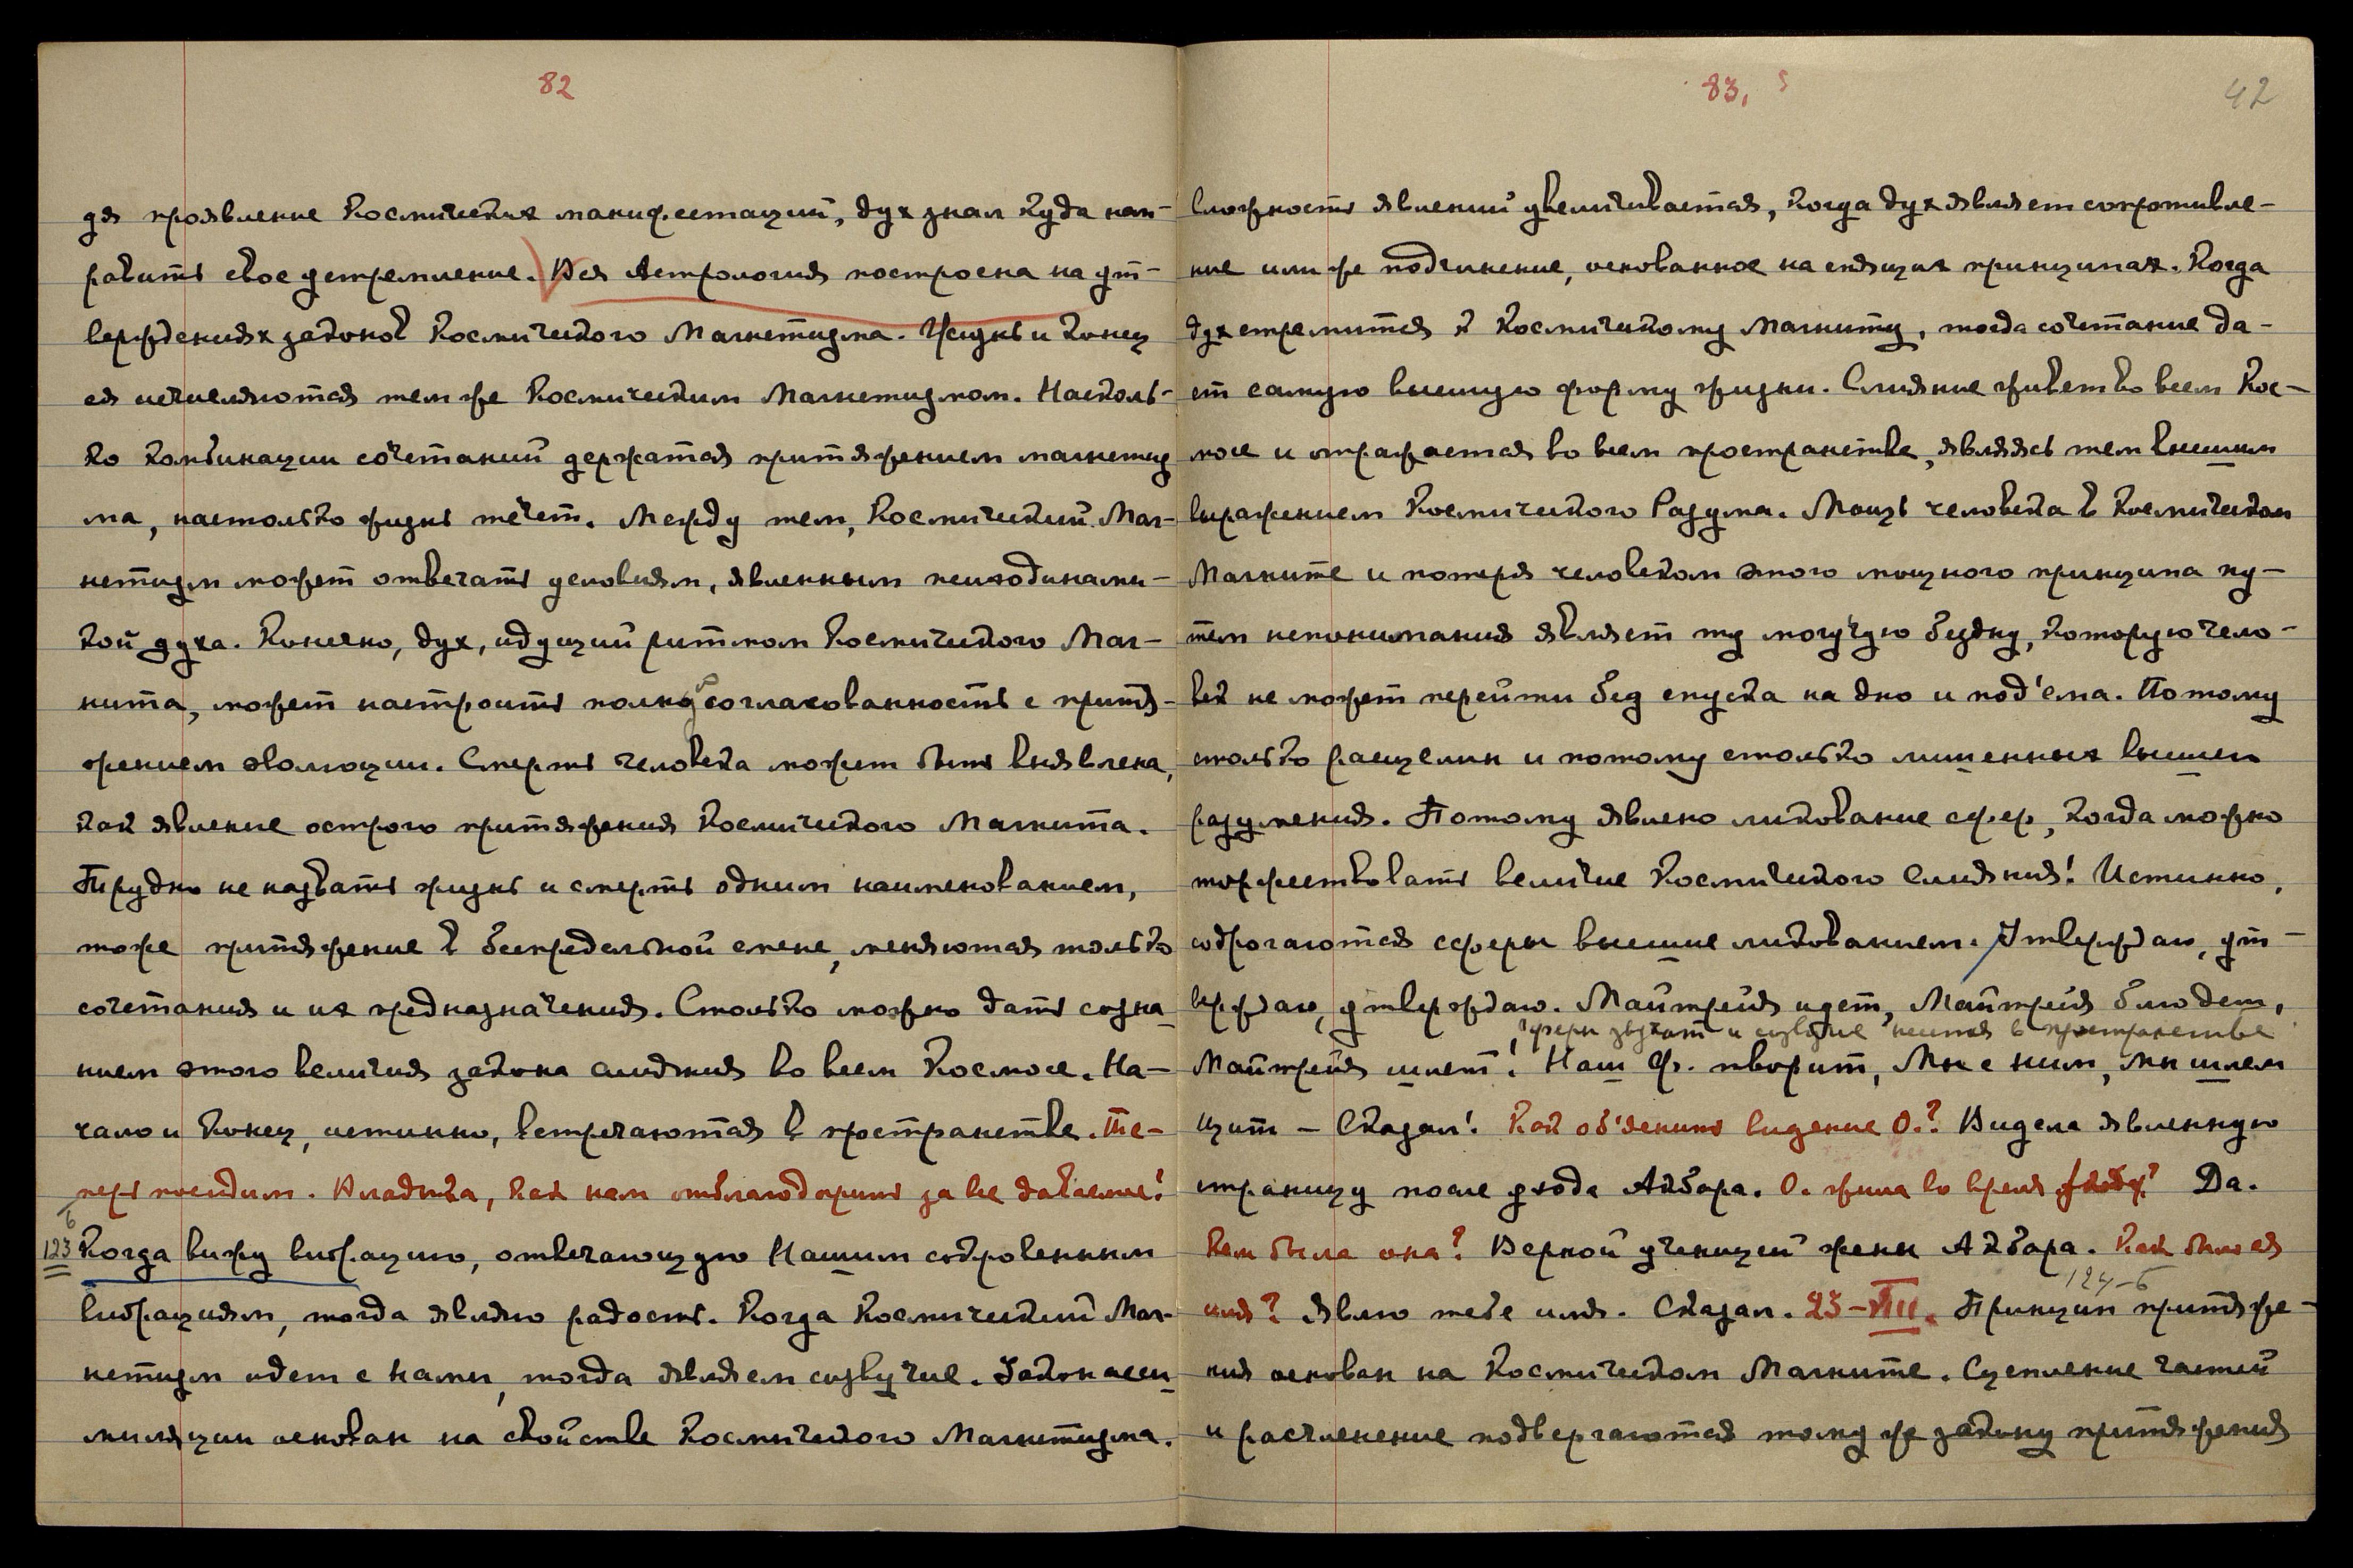 82
дя проявление Космических манифестаций, дух знал куда нап-
равить свое устремление. Вся Астрология построена на ут-
верждениях законов Космического Магнетизма. Жизнь и конец
ея исчисляются тем же Космическим Магнетизмом. Насколь-
ко комбинации сочетаний держатся притяжением магнетиз
ма, настолько жизнь течет. Между тем, Космический Маг-
нетизм может отвечать условиям, явленным психодинами-
кой духа. Конечно, дух, идущий ритмом Космического Маг-
нита, может настроить полную согласованность с притя-
жением эволюции. Смерть человека может быть выявлена,
как явление острого притяжения Космического Магнита.
Трудно не назвать жизнь и смерть одним наименованием,
тоже притяжение в беспредельной смене, меняются только
сочетания и их предназначения. Столько можно дать созна-
нием этого величия закона слияния во всем Космосе. На-
чало и конец, истинно, встречаются в пространстве. Те-
перь посидим. Владыка, как нам отблагодарить за все даваемое!
123 б
Когда вижу вибрацию, отвечающую Нашим сокровенным
вибрациям, тогда являю радость. Когда Космический Маг-
нетизм идет с нами, тогда являем созвучие. Закон асси-
миляции основан на свойстве Космического Магнетизма.
83,
42
Сложность явлений увеличивается, когда дух являет сопротивле-
ние или же подчинение, основанное на спящих принципах. Когда
дух стремится к Космическому Магниту, тогда сочетание да-
ет самую высшую форму жизни. Слияние живет во всем Кос-
мосе и отражается во всем пространстве, являясь тем высшим
выражением Космического Разума. Мощь человека в Космическом
Магните и потеря человеком этого мощного принципа пу-
тем непонимания являет ту могучую бездну, которую чело-
век не может перейти без спуска на дно и под'ема. Потому
столько расщелин и потому столько лишенных высшего
разумения. Потому явлено ликование сфер, когда можно
торжествовать величие Космического Слияния! Истинно,
содрогаются сферы высшие ликованием. Утверждаю, ут-
верждаю, утверждаю. Майтрейя идет, Майтрейя блюдет,
, сферы звучат и созвучие несется в пространстве
Майтрейя шлет! Наш Ф. творит, Мы с ним, мы шлем
щит – Сказал! Как об'яснить видение О.? Видела явленную
страницу после ухода Акбара. О. жила во время Да.
Кем была она? Верной ученицей жены Акбара. Как было ея
имя? Явлю тебе имя. Сказал. 23-VIII. 124-б Принцип притяже-
ния основан на Космическом Магните. Сцепление частей
и расчленение подвергаются тому же закону притяжения